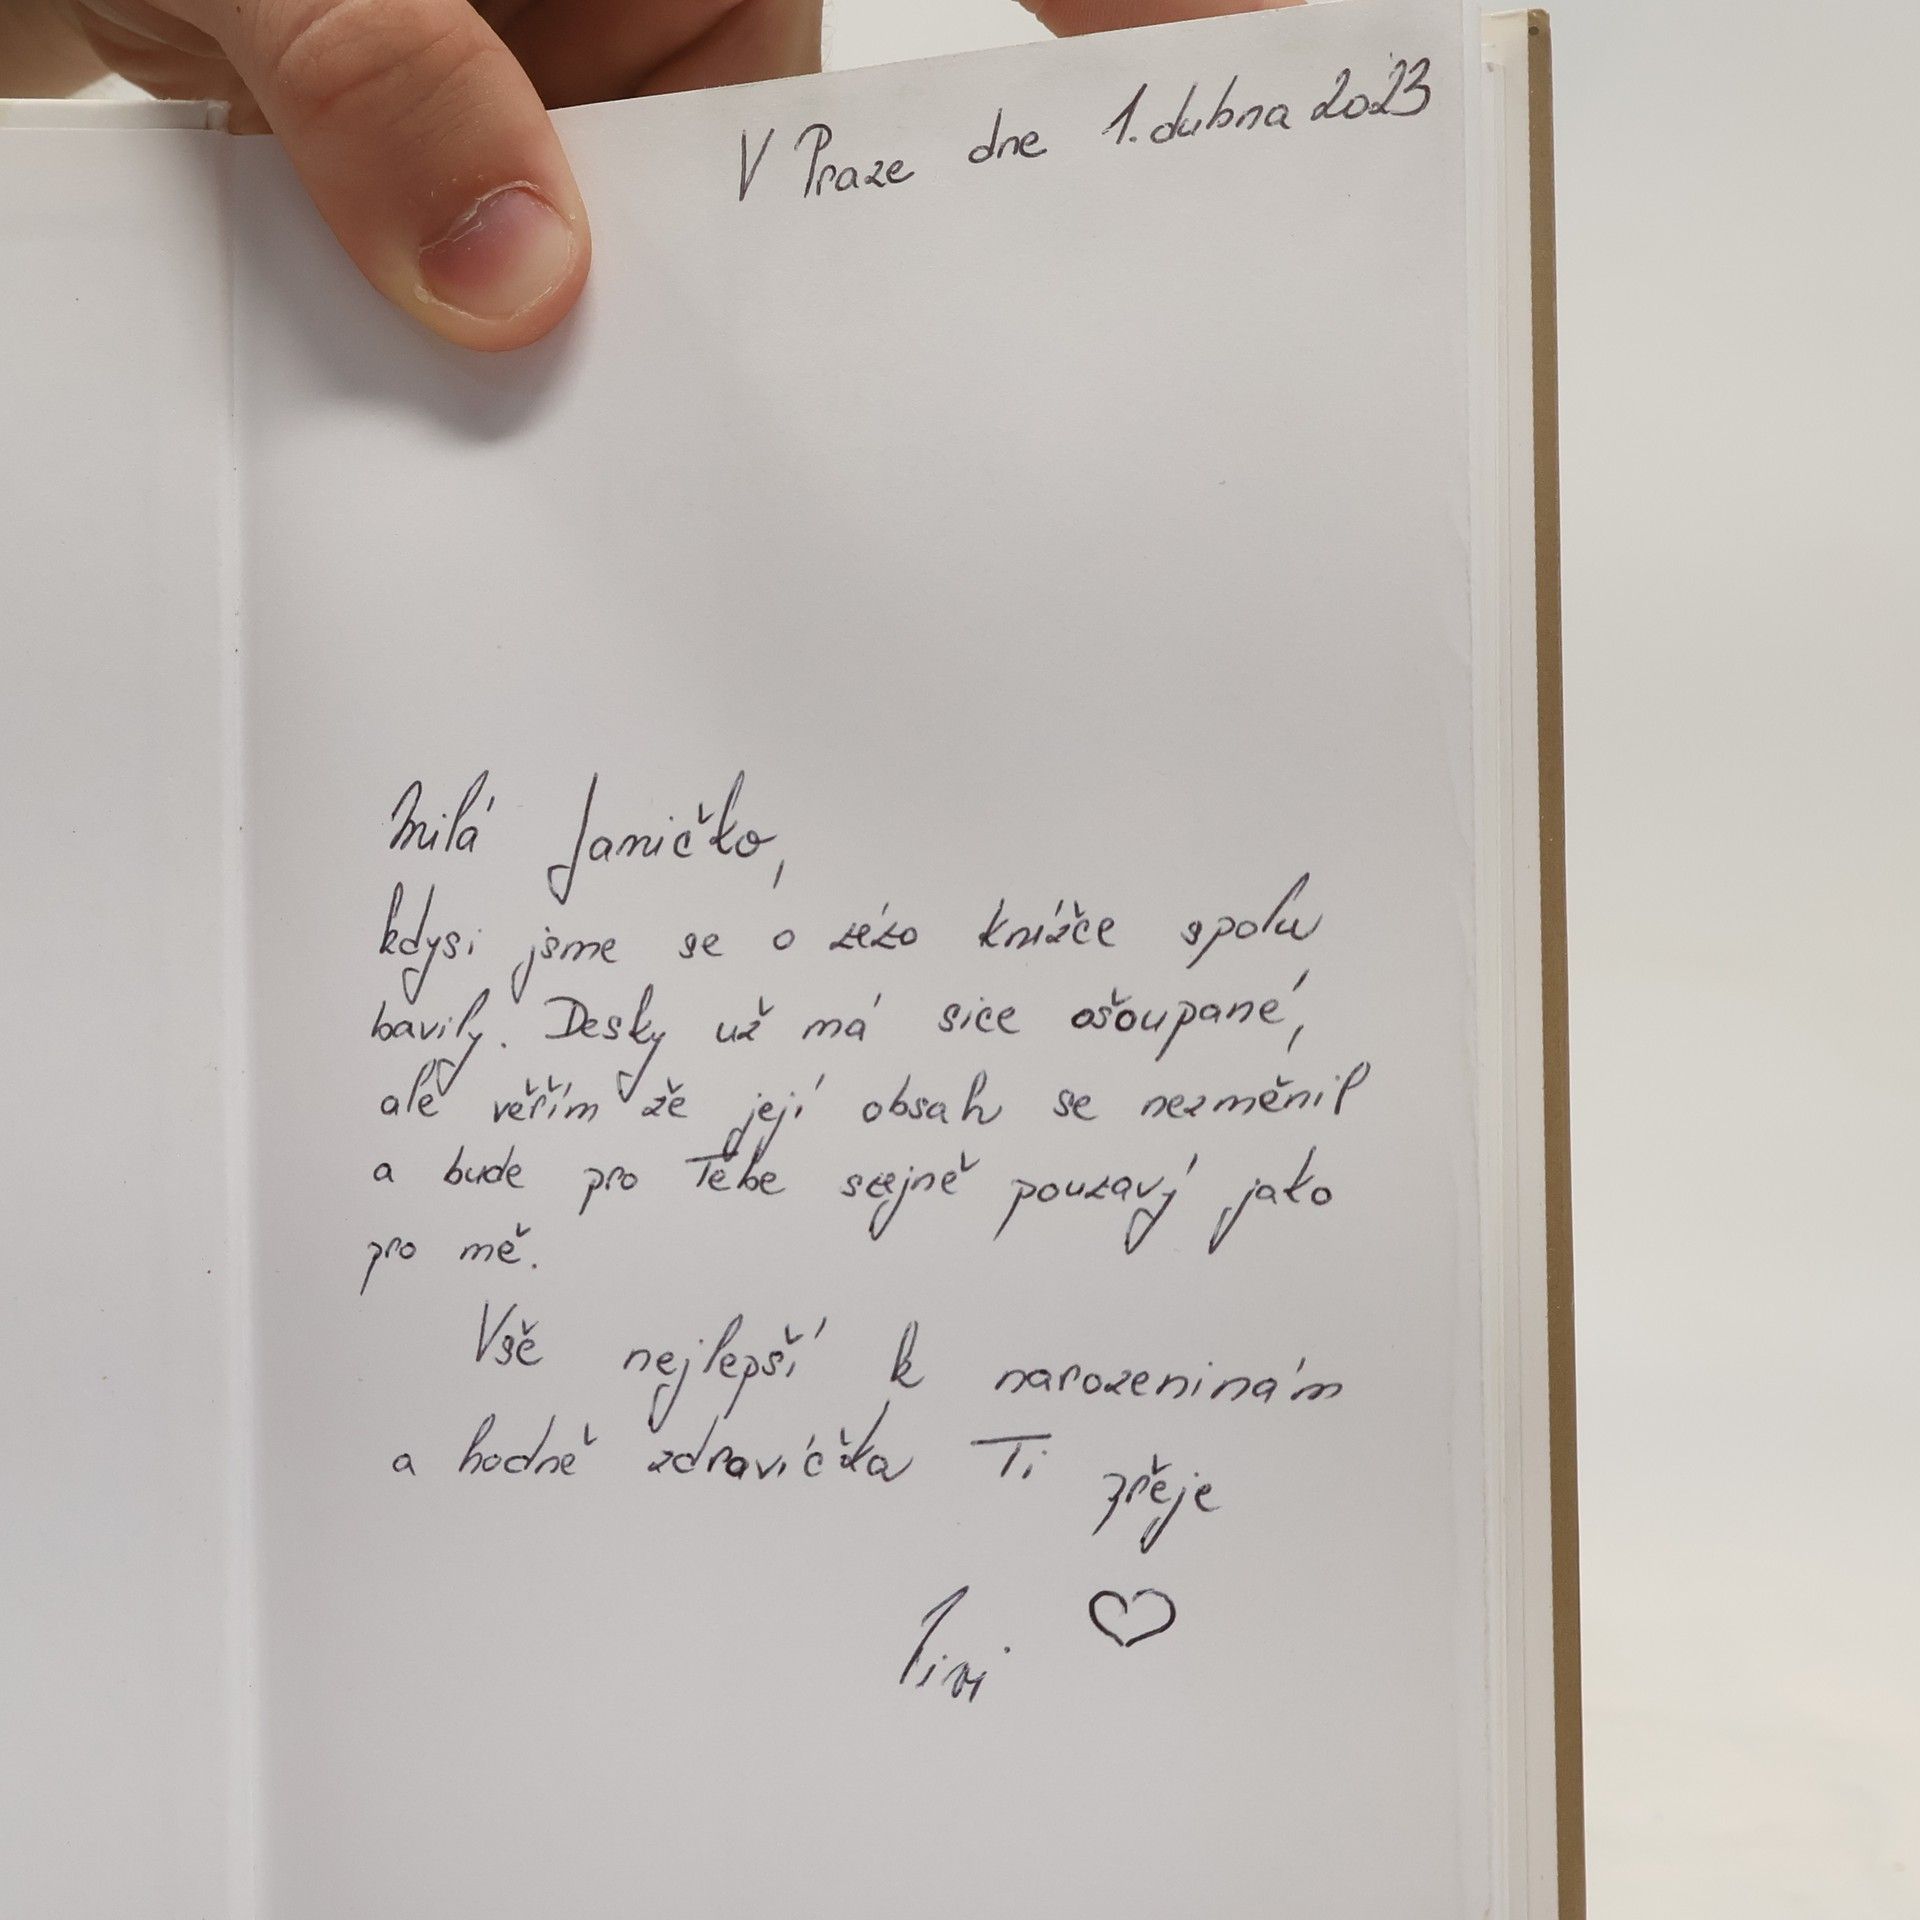 V Praze dne 1. dubna 2023
Milá Janičko,
kdysi jsme se o této knížce spolu
bavily. Desky už má sice ošoupané,
ale věřím že její obsah se nezměnil
a bude pro Tebe stejně poutavý jako
pro mě.
Vše nejlepší k narozeninám
a hodně zdravíčka Ti přeje